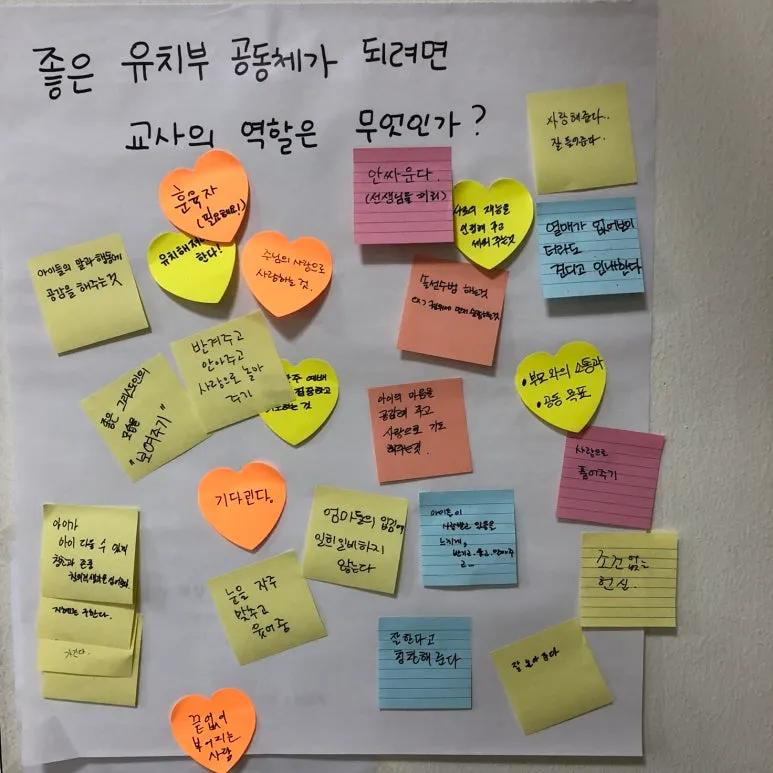 좋은 유치부 공동체가 되려면
교사의 역할은 무엇인가?
사랑해준다..
잘 들어준다.
훈육자
(필요해요!)
안싸운다.
(선생님들 끼리)
재능을
인정해 주고
세워 주는것
열매가 없어보이
더라도
견디고 인내한다
유치해져야
한다!
주님의 사랑으로
사랑하는 것.
아이들의 말과 행동에
공감을 해주는것
솔선수범 하는것
반겨주고
안아주고
사랑으로 놀아
주기
좋은 그리스도인의
모습을
"보여주기"
예배
것
아이의 마음을
공감해 주고
사랑으로 기도
해주는것.
• 부모와의 소통과
• 공동 목표
사랑으로
품어주기
기다린다.
엄마들의 입김에
일희일비하지
않는다
아이들이
사랑받고 있음을
느끼게,
조건 없는
헌신.
아이가
아이 다울 수 있게
지혜를 구한다.
눈을 자주
맞추고
웃어줌
잘한다고
칭찬해 준다
잘 놀아 준다
끝없이
부어지는
사랑